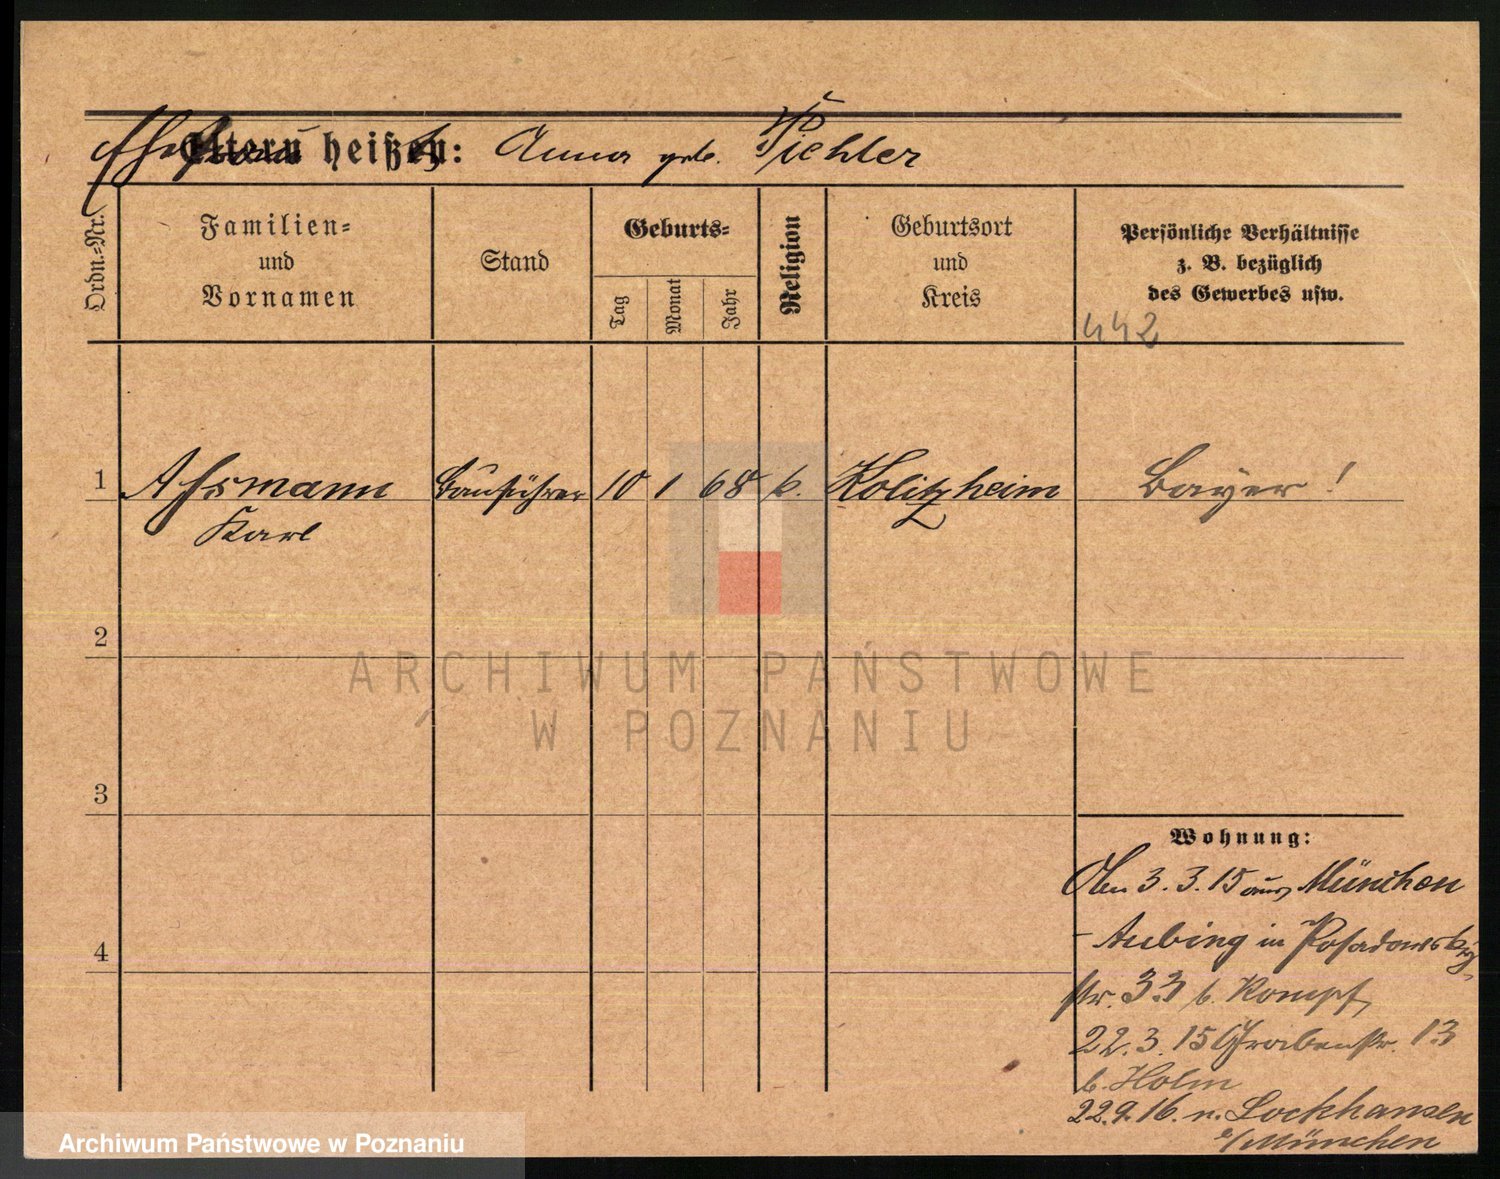 Ehefrau heißt: Anna geb. Pichler
Ordn.-Nr.
Familien-
und
Vornamen
Stand
Geburts-
Tag
Monat
Jahr
Religion
Geburtsort
und
Kreis
Persönliche Verhältnisse
z. B. bezüglich
des Gewerbes usw.
442
1 Assmann Bauführer 10 1 68 k. Kolitzheim Bayer!
Karl
2
3
4
Wohnung:
3.3.15 aus München
- Aubing in Posadowsky
str. 33 b. Kompf,
22.3.15 Grabenstr. 13
b. Holm
22.9.16. n. Lochhausen
b/München
ARCHIWUM PAŃSTWOWE
W POZNANIU
Archiwum Państwowe w Poznaniu